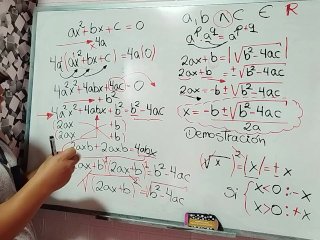 ax² + bx + c = 0
4a
4a(ax² + bx + c) = 4a(0)
4a²x² + 4abx + 4ac = 0
+ b²
4a²x² + 4abx + b² = b² - 4ac
(2ax + b)
(2ax + b)
2axb + 2axb = 4abx
(2ax + b)² = b² - 4ac
√(2ax + b)² = √b² - 4ac
a, b ∧ C ∈ R
aᵖ a^q = a^(p+q)
2ax + b = |√b² - 4ac|
2ax + b = ± √b² - 4ac
2ax = -b ± √b² - 4ac
x = -b ± √b² - 4ac
2a
Demostración
(√x)² = |x| = ± x
Si { x < 0 : -x
x > 0 : +x